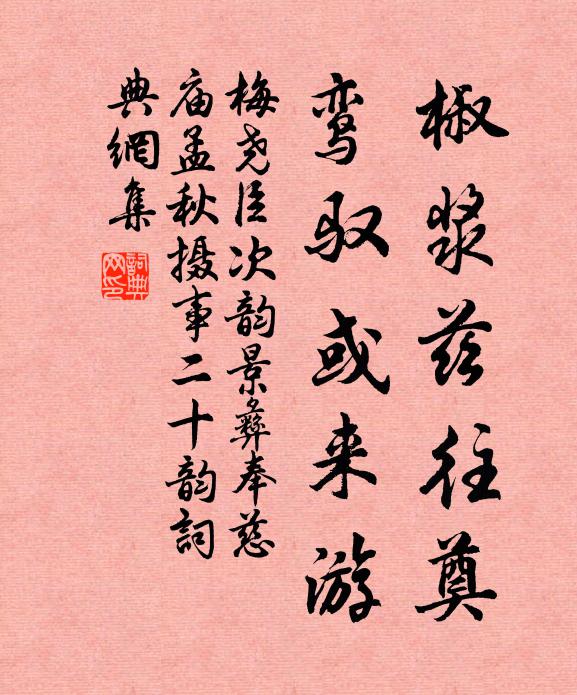 椒浆兹往奠
鸾驭或来游
梅尧臣次韵景彝奉慈
庙孟秋摄事二十韵詞
典網集
詞典
网印